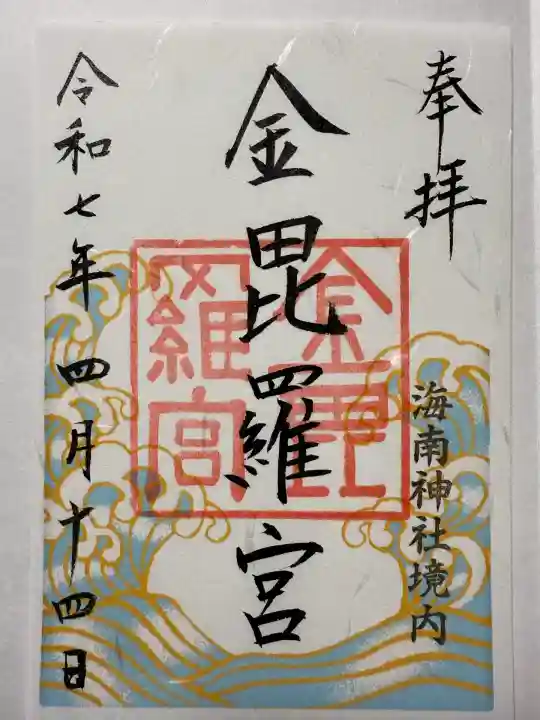 奉拝
海南神社境内
金毘羅宮
金毘羅宮
令和七年四月十四日